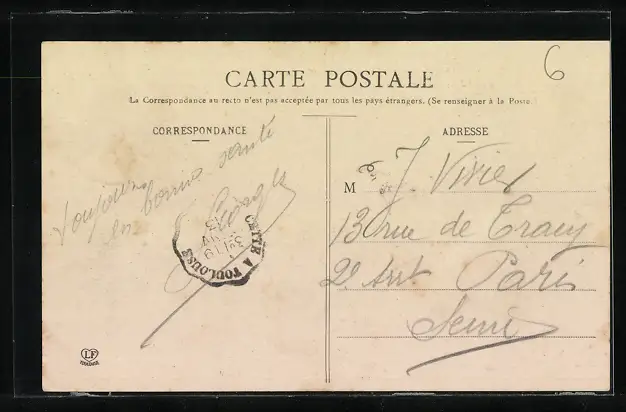 6
CARTE POSTALE
La Correspondance au recto n'est pas acceptée par tous les pays étrangers. (Se renseigner à la Poste.)
CORRESPONDANCE
ADRESSE
Toujours
en bonne santé
CETTE A TOULOUSE
M J. Vivier
13 rue de Tracy
2e Arrt Paris
Seine
LF